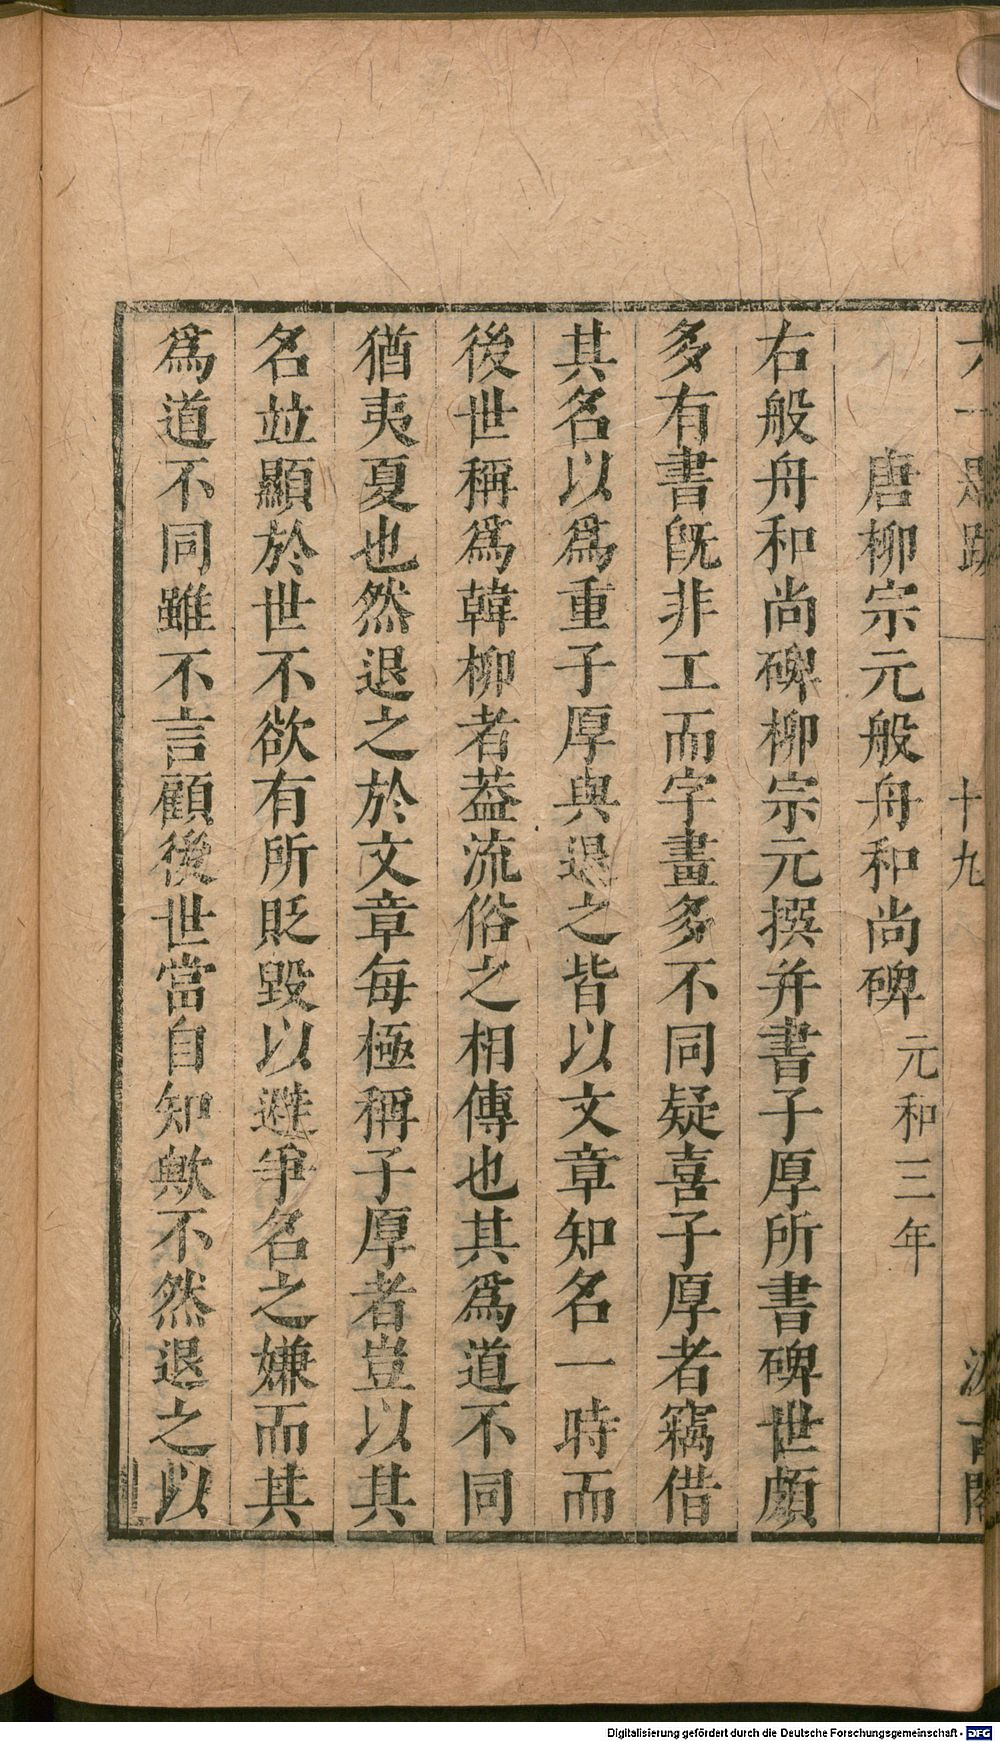 六一題跋
十九
汲古閣
唐柳宗元般舟和尚碑 元和三年
右般舟和尚碑柳宗元撰并書子厚所書碑世頗
多有書旣非工而字畫多不同疑喜子厚者竊借
其名以爲重子厚與退之皆以文章知名一時而
後世稱爲韓柳者葢流俗之相傳也其爲道不同
猶夷夏也然退之於文章每極稱子厚者豈以其
名竝顯於世不欲有所貶毀以避爭名之嫌而其
爲道不同雖不言顧後世當自知歟不然退之以
Digitalisierung gefördert durch die Deutsche Forschungsgemeinschaft - DFG